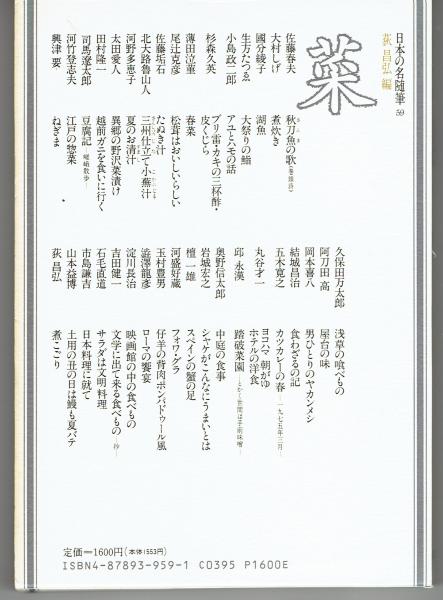 日本の名随筆 59
荻 昌弘 編
菜
佐藤春夫 秋刀魚の歌(巻頭詩)
大村しげ 煮炊き
國分綾子 湖魚
生方たつゑ 大祭りの鮨
小島政二郎 アユとハモの話
杉森久英 ブリ雷・カキの三杯酢・
皮くじら
薄田泣菫 春菜
尾辻克彦 松茸はおいしいらしい
佐藤垢石 たぬき汁
北大路魯山人 三州仕立て小蕪汁
河野多恵子 夏のお清汁
太田愛人 異郷の野沢菜漬け
田村隆一 越前ガニを食いに行く
司馬遼太郎 豆腐記—嵯峨散歩—
河竹登志夫 江戸の惣菜
興津 要 ねぎま
久保田万太郎 浅草の喰べもの
阿刀田 高 屋台の味
岡本喜八 男ひとりのヤカンメシ
結城昌治 食わざるの記
五木寛之 カツカレーの春—一九七五年三月—
丸谷才一 ヨコハマ朝がゆ
ホテルの洋食
邱 永漢 踏破菜園—とかく世間は手前味噌—
奥野信太郎 中庭の食事
岩城宏之 シャケがこんなにうまいとは
檀 一雄 スペインの蟹の足
河盛好蔵 フォワ・グラ
玉村豊男 仔羊の背肉ポンパドゥール風
澁澤龍彦 ローマの饗宴
淀川長治 映画館の中の食べもの
吉田健一 文学に出て来る食べもの—抄—
石毛直道 サラダは文明料理
市島謙吉 日本料理に就て
山本益博 土用の丑の日は鰻も夏バテ
荻 昌弘 煮こごり
定価=1600円(本体1553円)
ISBN4-87893-959-1 C0395 P1600E